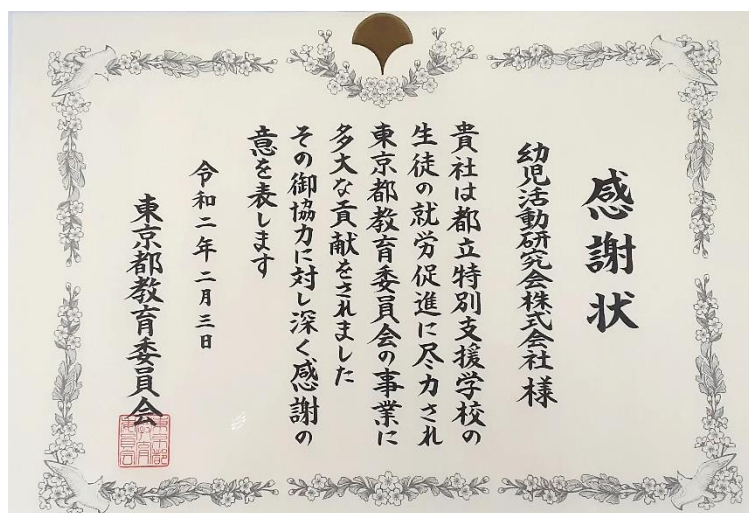 感謝状
幼児活動研究会株式会社様
貴社は都立特別支援学校の
生徒の就労促進に尽力され
東京都教育委員会の事業に
多大な貢献をされました
その御協力に対し深く感謝の
意を表します
令和二年二月三日
東京都教育委員会
東京都
教育
委員会